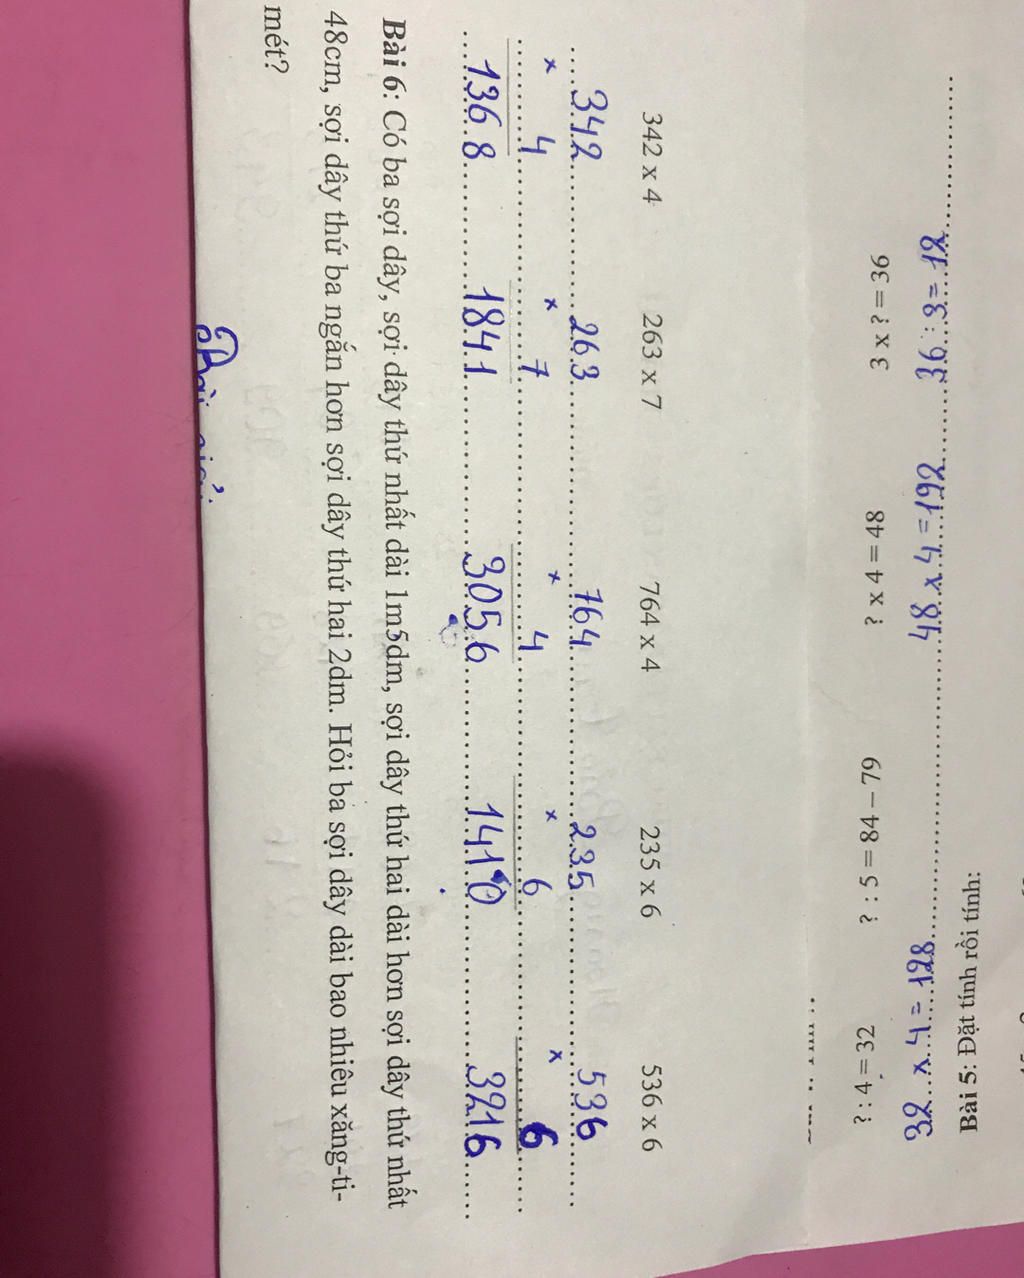 ? : 4 = 32 ? : 5 = 84 – 79 ? x 4 = 48 3 x ? = 36
32 x 4 = 128 48 x 4 = 192 36 : 3 = 12
Bài 5: Đặt tính rồi tính:
342 x 4 263 x 7 764 x 4 235 x 6 536 x 6
342 263 764 235 536
x 4 x 7 x 4 x 6 x 6
1368 1841 3056 1410 3216
Bài 6: Có ba sợi dây, sợi dây thứ nhất dài 1m5dm, sợi dây thứ hai dài hơn sợi dây thứ nhất
48cm, sợi dây thứ ba ngắn hơn sợi dây thứ hai 2dm. Hỏi ba sợi dây dài bao nhiêu xăng-ti-
mét?
Bài giải